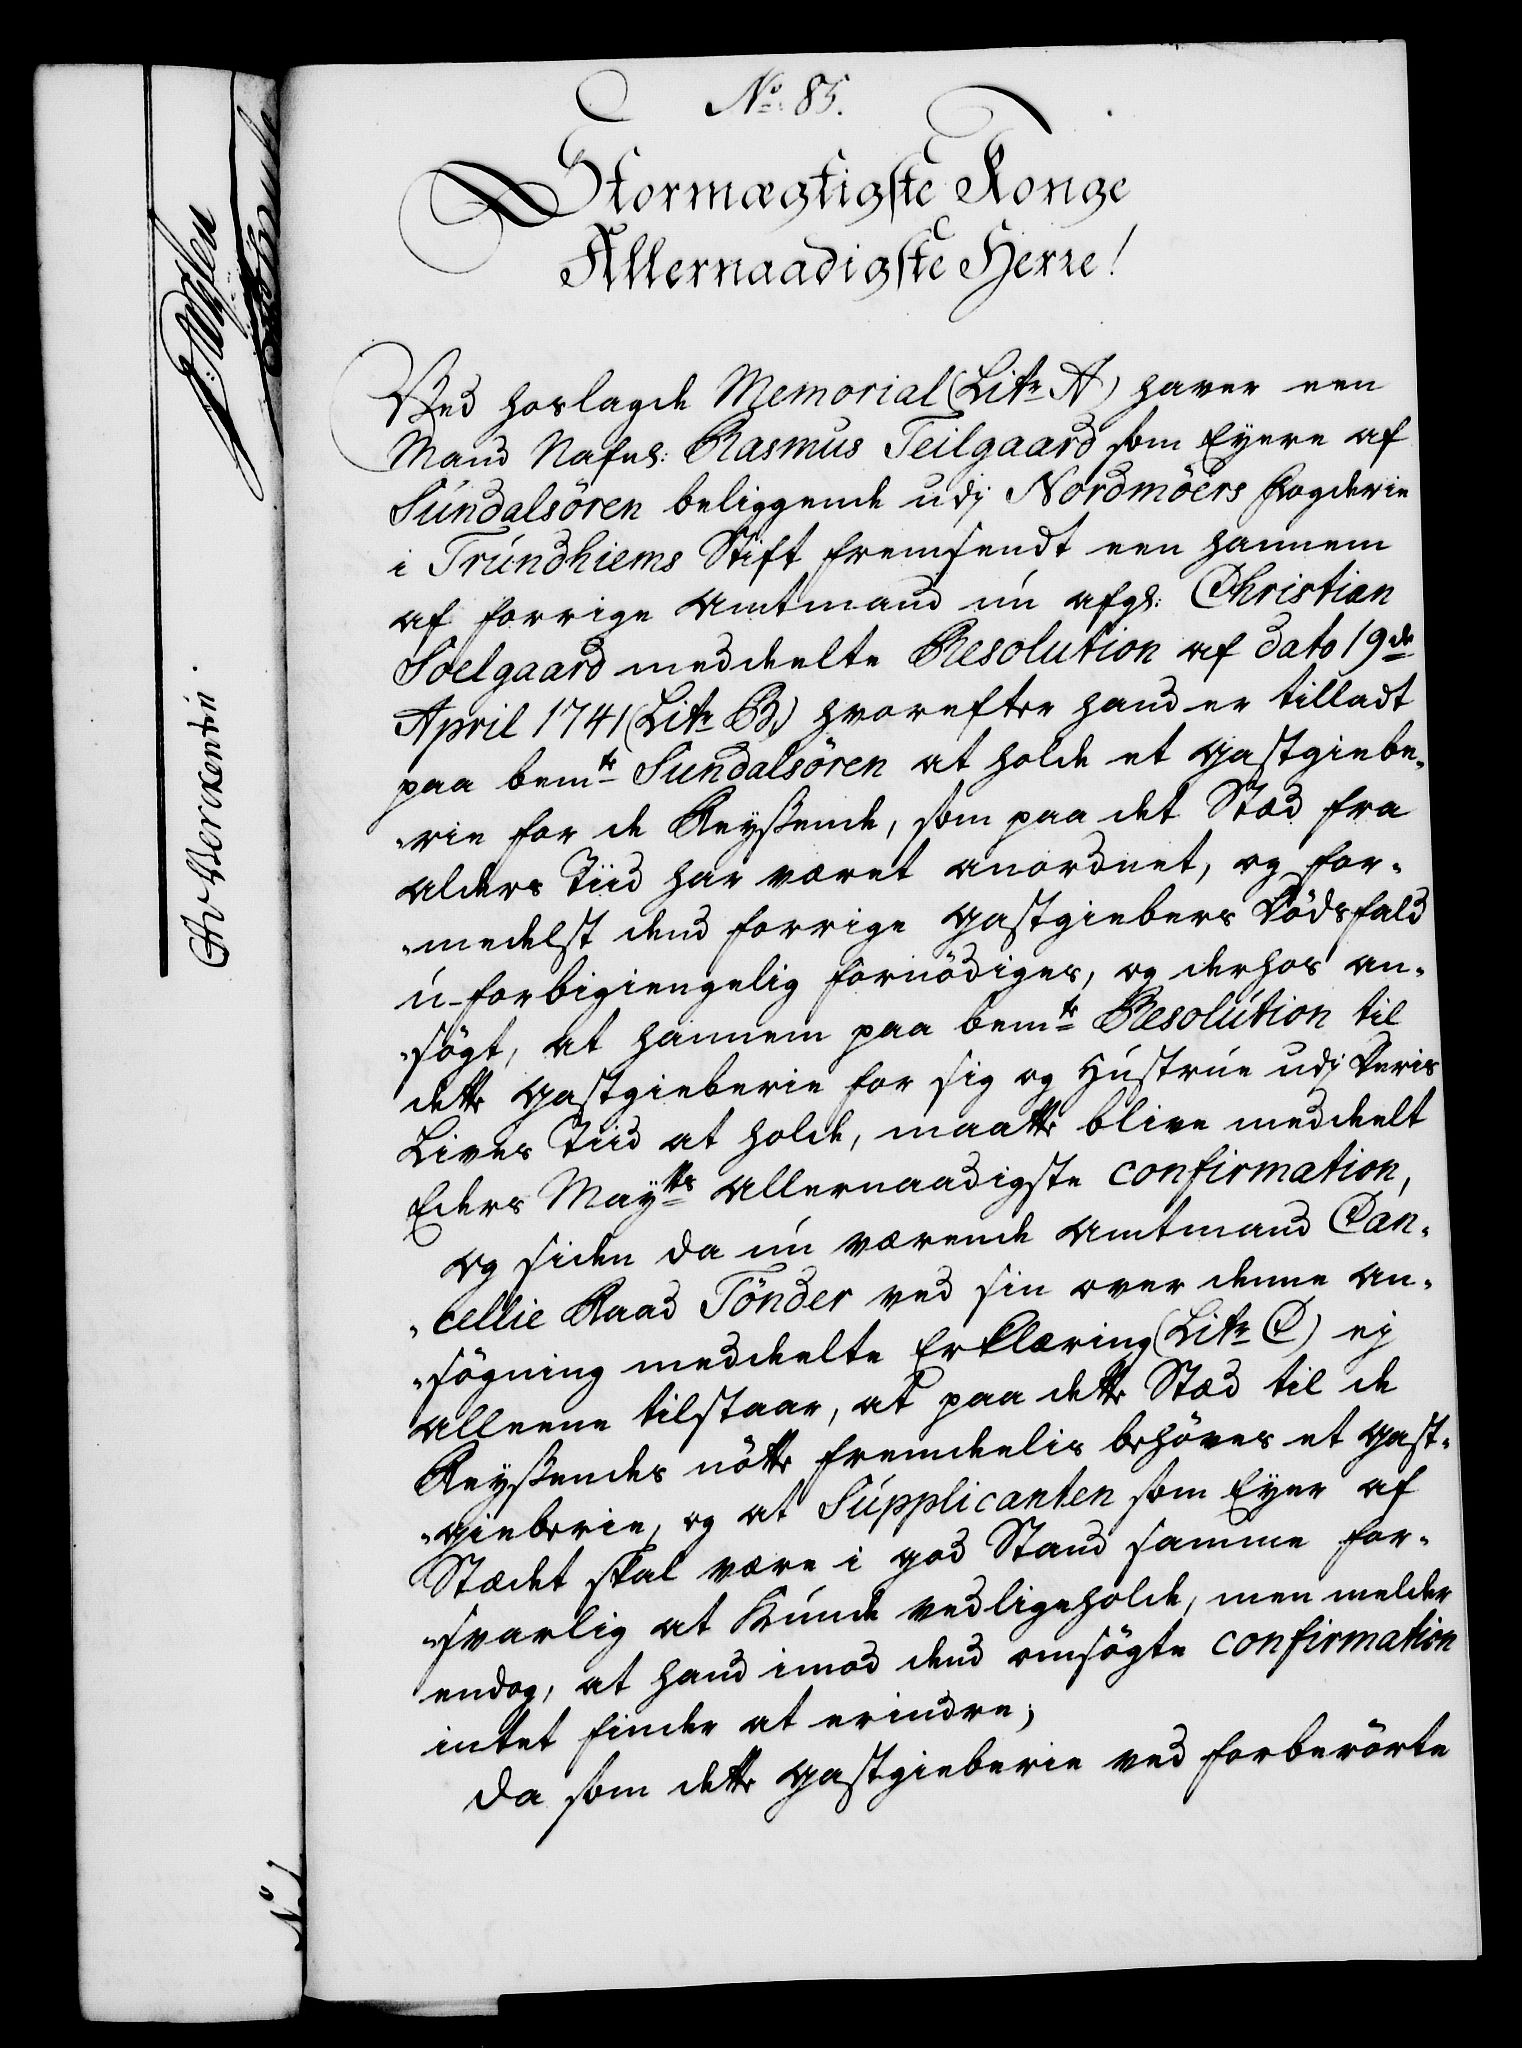 No: 85.
Stormægtigste Konge
Allernaadigste Herre!
Ved hoslagde Memorial (Litr A) haver een
Mand Nafnl: Rasmus Teilgaard som Eyere af
Sundalsören beliggende udj Nordmöers Fogderie
i Trundhiems Stift fremsendt een hannem
af forrige Amtmand nu afgl: Christian
Soelgaard meddeelte Resolution af dato 19de
April 1741 (Litr B) hvorefter hand er tilladt
paa bemte Sundalsören at holde et Gastgiebe-
-rie for de Reyßende, som paa det Stæd fra
Alders Tiid har været anordnet, og for-
-medelst dend forrige Gastgiebers Dödsfald
u-forbigiengelig fornödiges, og derhos an-
-sögt, at hannem paa bemte Resolution til
dette Gastgieberie for sig og Hustrue udj Deris
Lives Tiid at holde, maatte blive meddeelt
Eders Maytts Allernaadigste confirmation,
Og siden da nu værende Amtmand Can-
-cellie Raad Tönder ved sin over denne An-
-sögning meddeelte Erklæring (Litr C) ej
alleene tilstaar, at paa dette Stæd til de
Reyßendes nötte fremdeelis behöves et Gast-
-gieberie, og at Supplicanten som Eyer af
Stædet skal være i god Stand samme for-
-svarlig at kunde vedligeholde, men melder
endog, at hand imod dend ansögte confirmation
intet finder at erindre;
Da som dette Gastgieberie ved forberörte
Av Berckentin